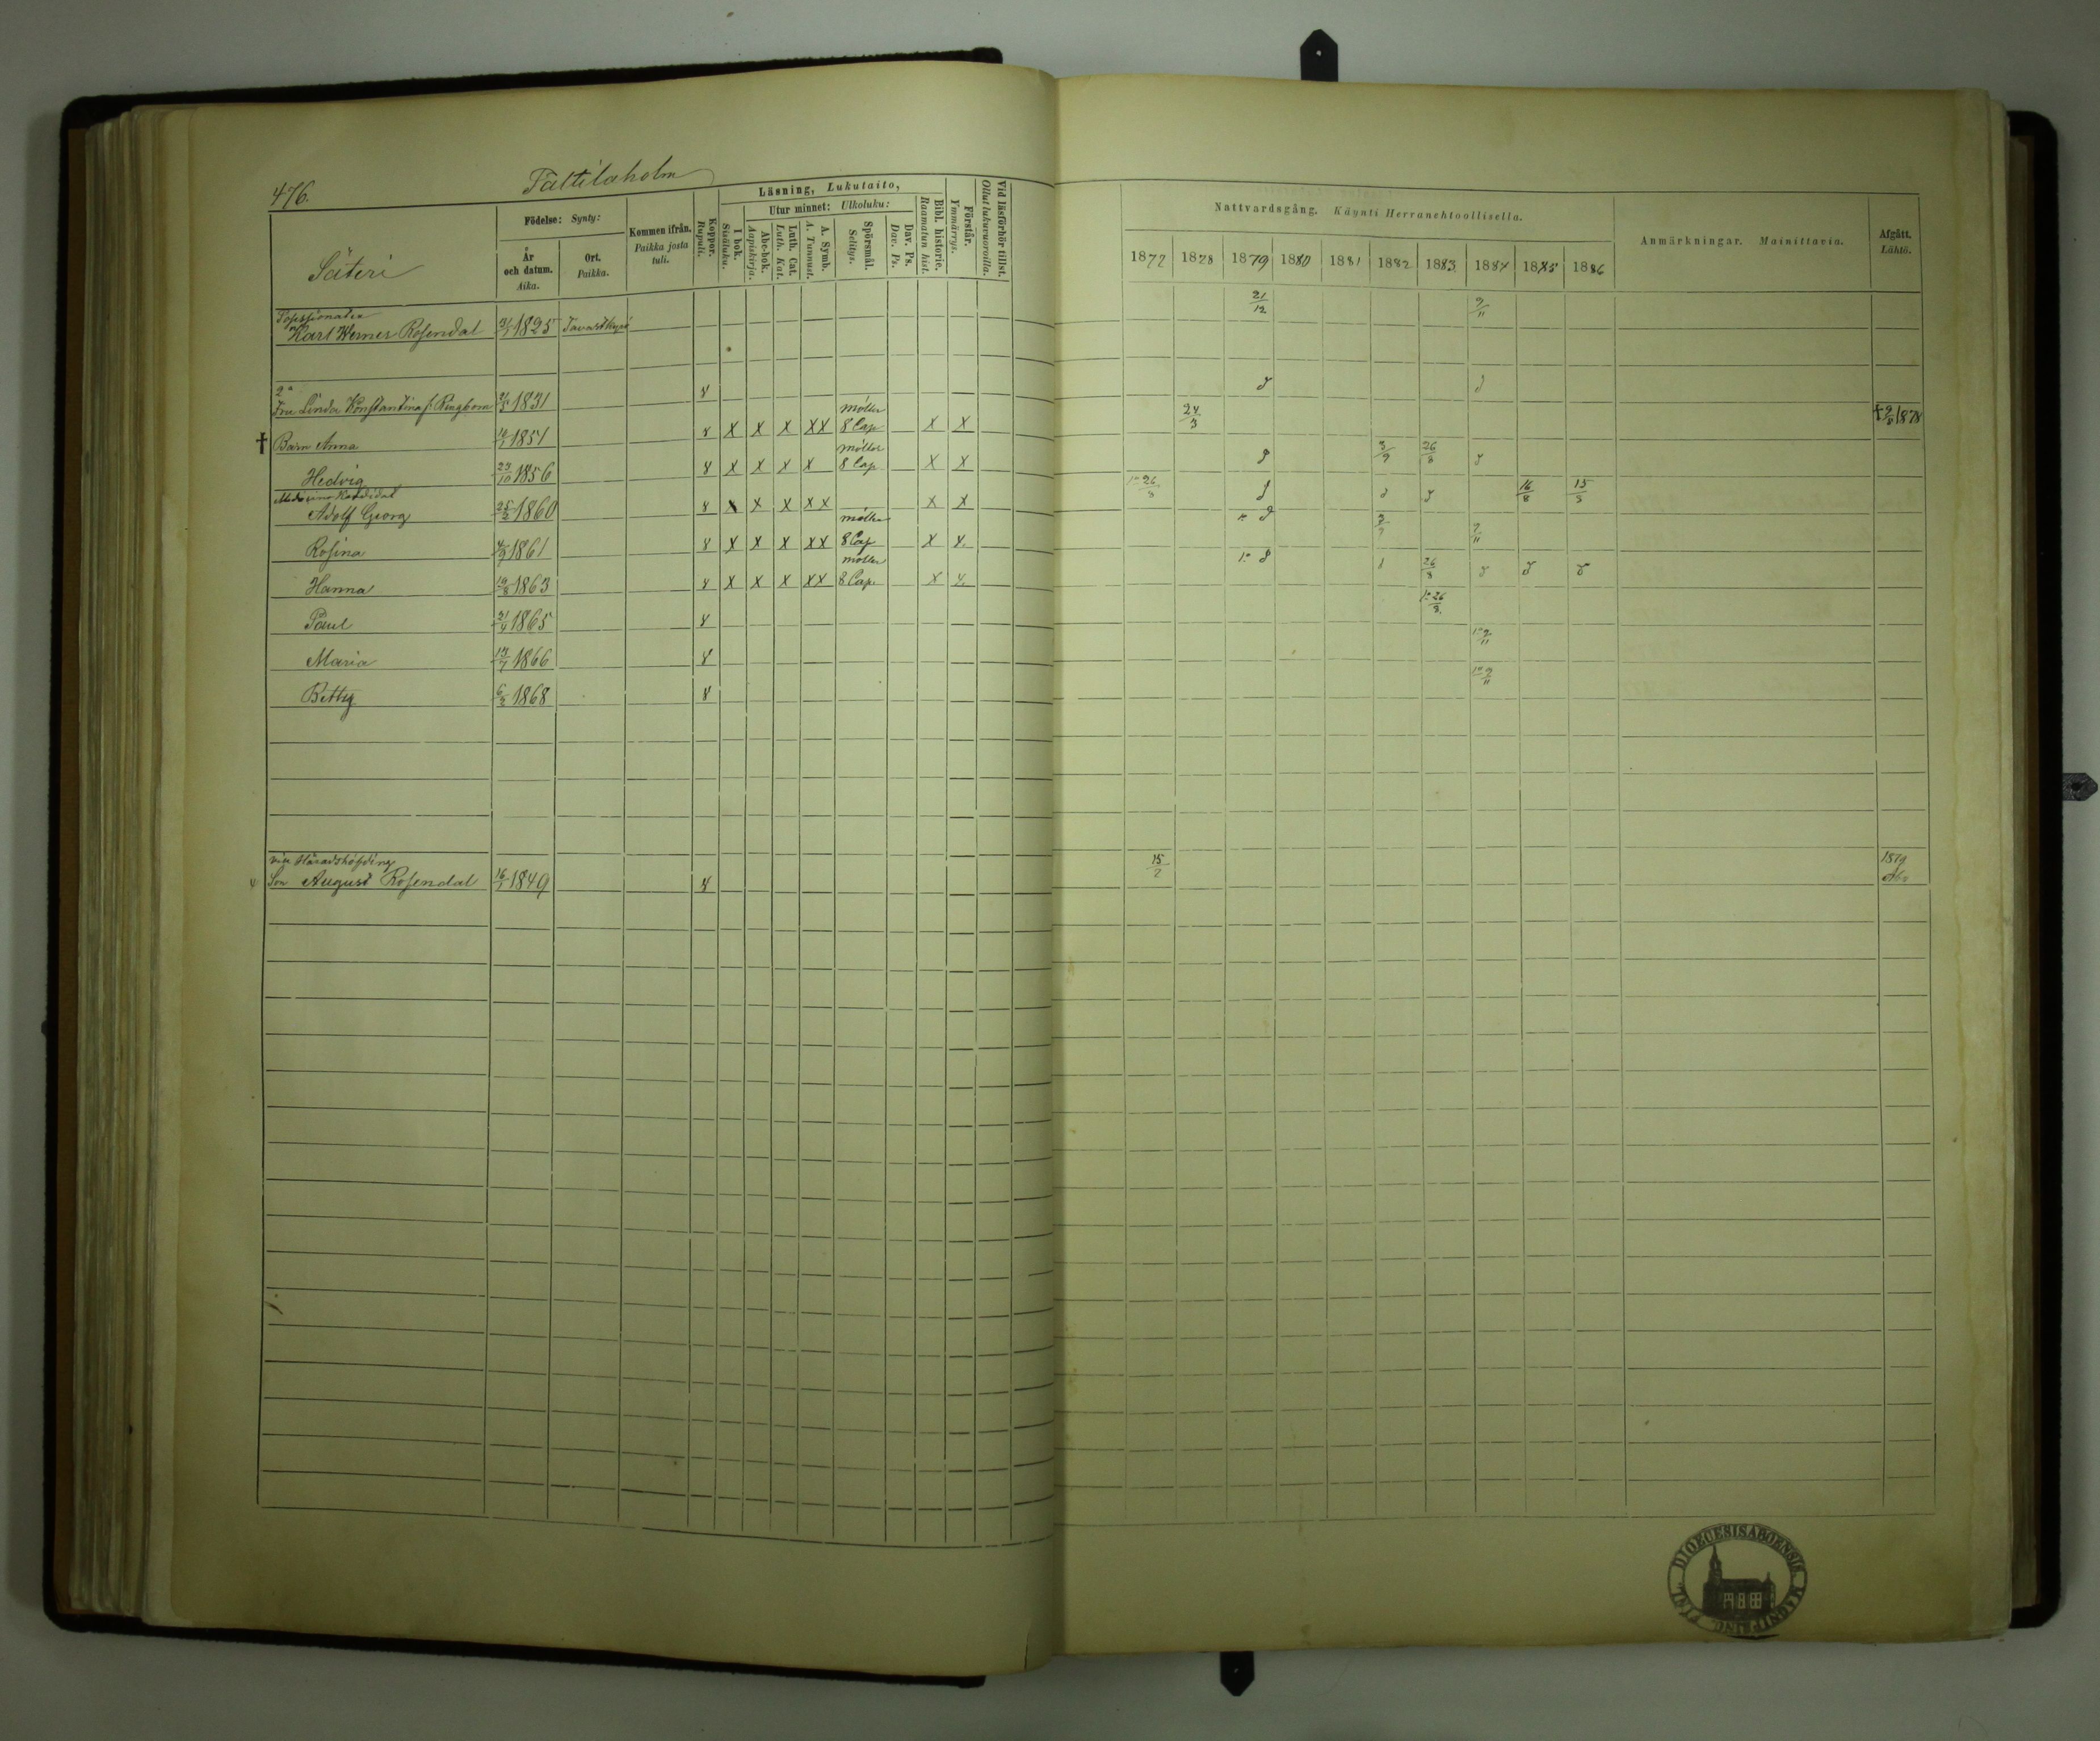 476.
Tättilaholm
Säteri
Födelse: Synty:
År och datum. Aika.
Ort. Paikka.
Kommen ifrån. Paikka josta tuli.
Koppor. Rupuli.
Läsning, Lukutaito,
I bok. Sisäluku.
Utur minnet: Ulkoluku:
Abc-bok. Aapiskirja.
Luth. Cat. Luth. Kat.
A. Symb. A. Tunnust.
Spörsmål. Selitys.
Dav. Ps. Dav. Ps.
Bibl. historie. Raamatun hist.
Förstår. Ymmärrys.
Vid läsförhör tillst. Ollut lukuvuoroilla.
Nattvardsgång. Käynti Herranehtoollisella.
1872 1878 1879 1880 1881 1882 1883 1884 1885 1886
Anmärkningar. Mainittavia.
Afgått. Lähtö.
Possessionaten
Karl Werner Rosendal 1825 Tavastkyrö 21/12 9/11
2a
Fru Linda Konstantina f. Ringbom 1831
† Barn Anna 1851 X X X XX möller 8 Cap X X 24/3 † 9/5 1878
Hedvig 23/10 1856 X X X X möller 8 Cap X X 3/9 26/8
Medicine Kandidat
Adolf Georg 25/3 1860 X X X XX X X 1n 26/8 16/8 15/8
Rosina 1861 X X X XX möller 8 Cap X X 3/9 9/11
Hanna 19/8 1863 X X X XX möller 8 Cap. X X 26/8
Paul 21/4 1865 1n 26/8
Maria 13/7 1866 1n 9/11
Betty 6/3 1868 1n 9/11
vice Häradshöfding
Son August Rosendal 16/1 1849 15/2 1879 Åbo
DIOECESIS ABOENSIS MAGNI PRINC. FINL.